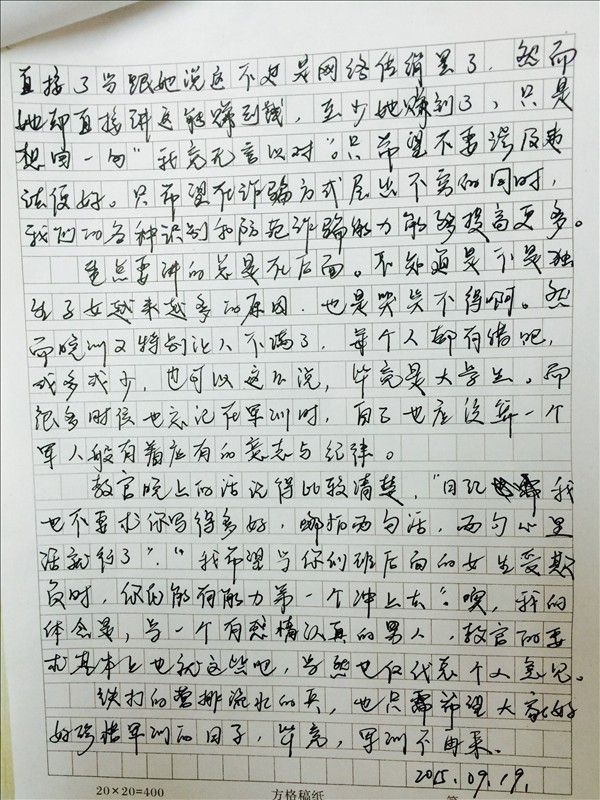 直接了当跟她说这不就是网络传销罢了，然而
她却直接讲这能赚到钱，至少她赚到了，只是
想回一句"我竟无言以对"。只希望不要误及表
达便好。只希望在诈骗方式层出不穷的同时，
我们的各种识别和防范诈骗能力能够提高更多。
重点要讲的总是在后面。不知道是不是独
生子女越来越多的原因，也是哭笑不得啊。然
而晚训又特别让人不满了，每个人都有错吧，
或多或少，也可以这么说，毕竟是大学生。而
很多时候也忘记在军训时，自己也应该算一个
军人般有着应有的意志与纪律。
教官晚上的话说得比较清楚，"日记 我
也不要求你写得多好，哪怕两句话，两句心里
话就行了"。"我希望当你们班后面的女生受欺
负时，你们能有能力第一个冲上去"。噢，我的
体会是，当一个有热情认真的男人，教官的要
求基本上也就这些吧，当然也仅代表个人意见。
铁打的营排流水的兵，也只希望大家好
好珍惜军训的日子，毕竟，军训不再来。
2015.09.19.
20×20=400 方格稿纸 第